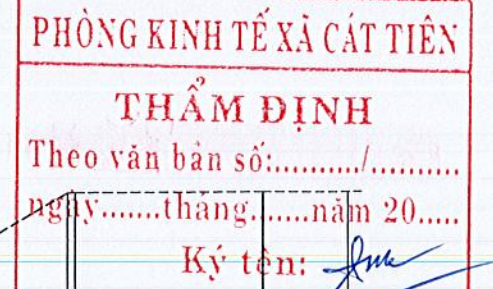 PHÒNG KINH TẾ XÃ CÁT TIÊN
THẨM ĐỊNH
Theo văn bản số:........../..........
ngày.......tháng.......năm 20.....
Ký tên: